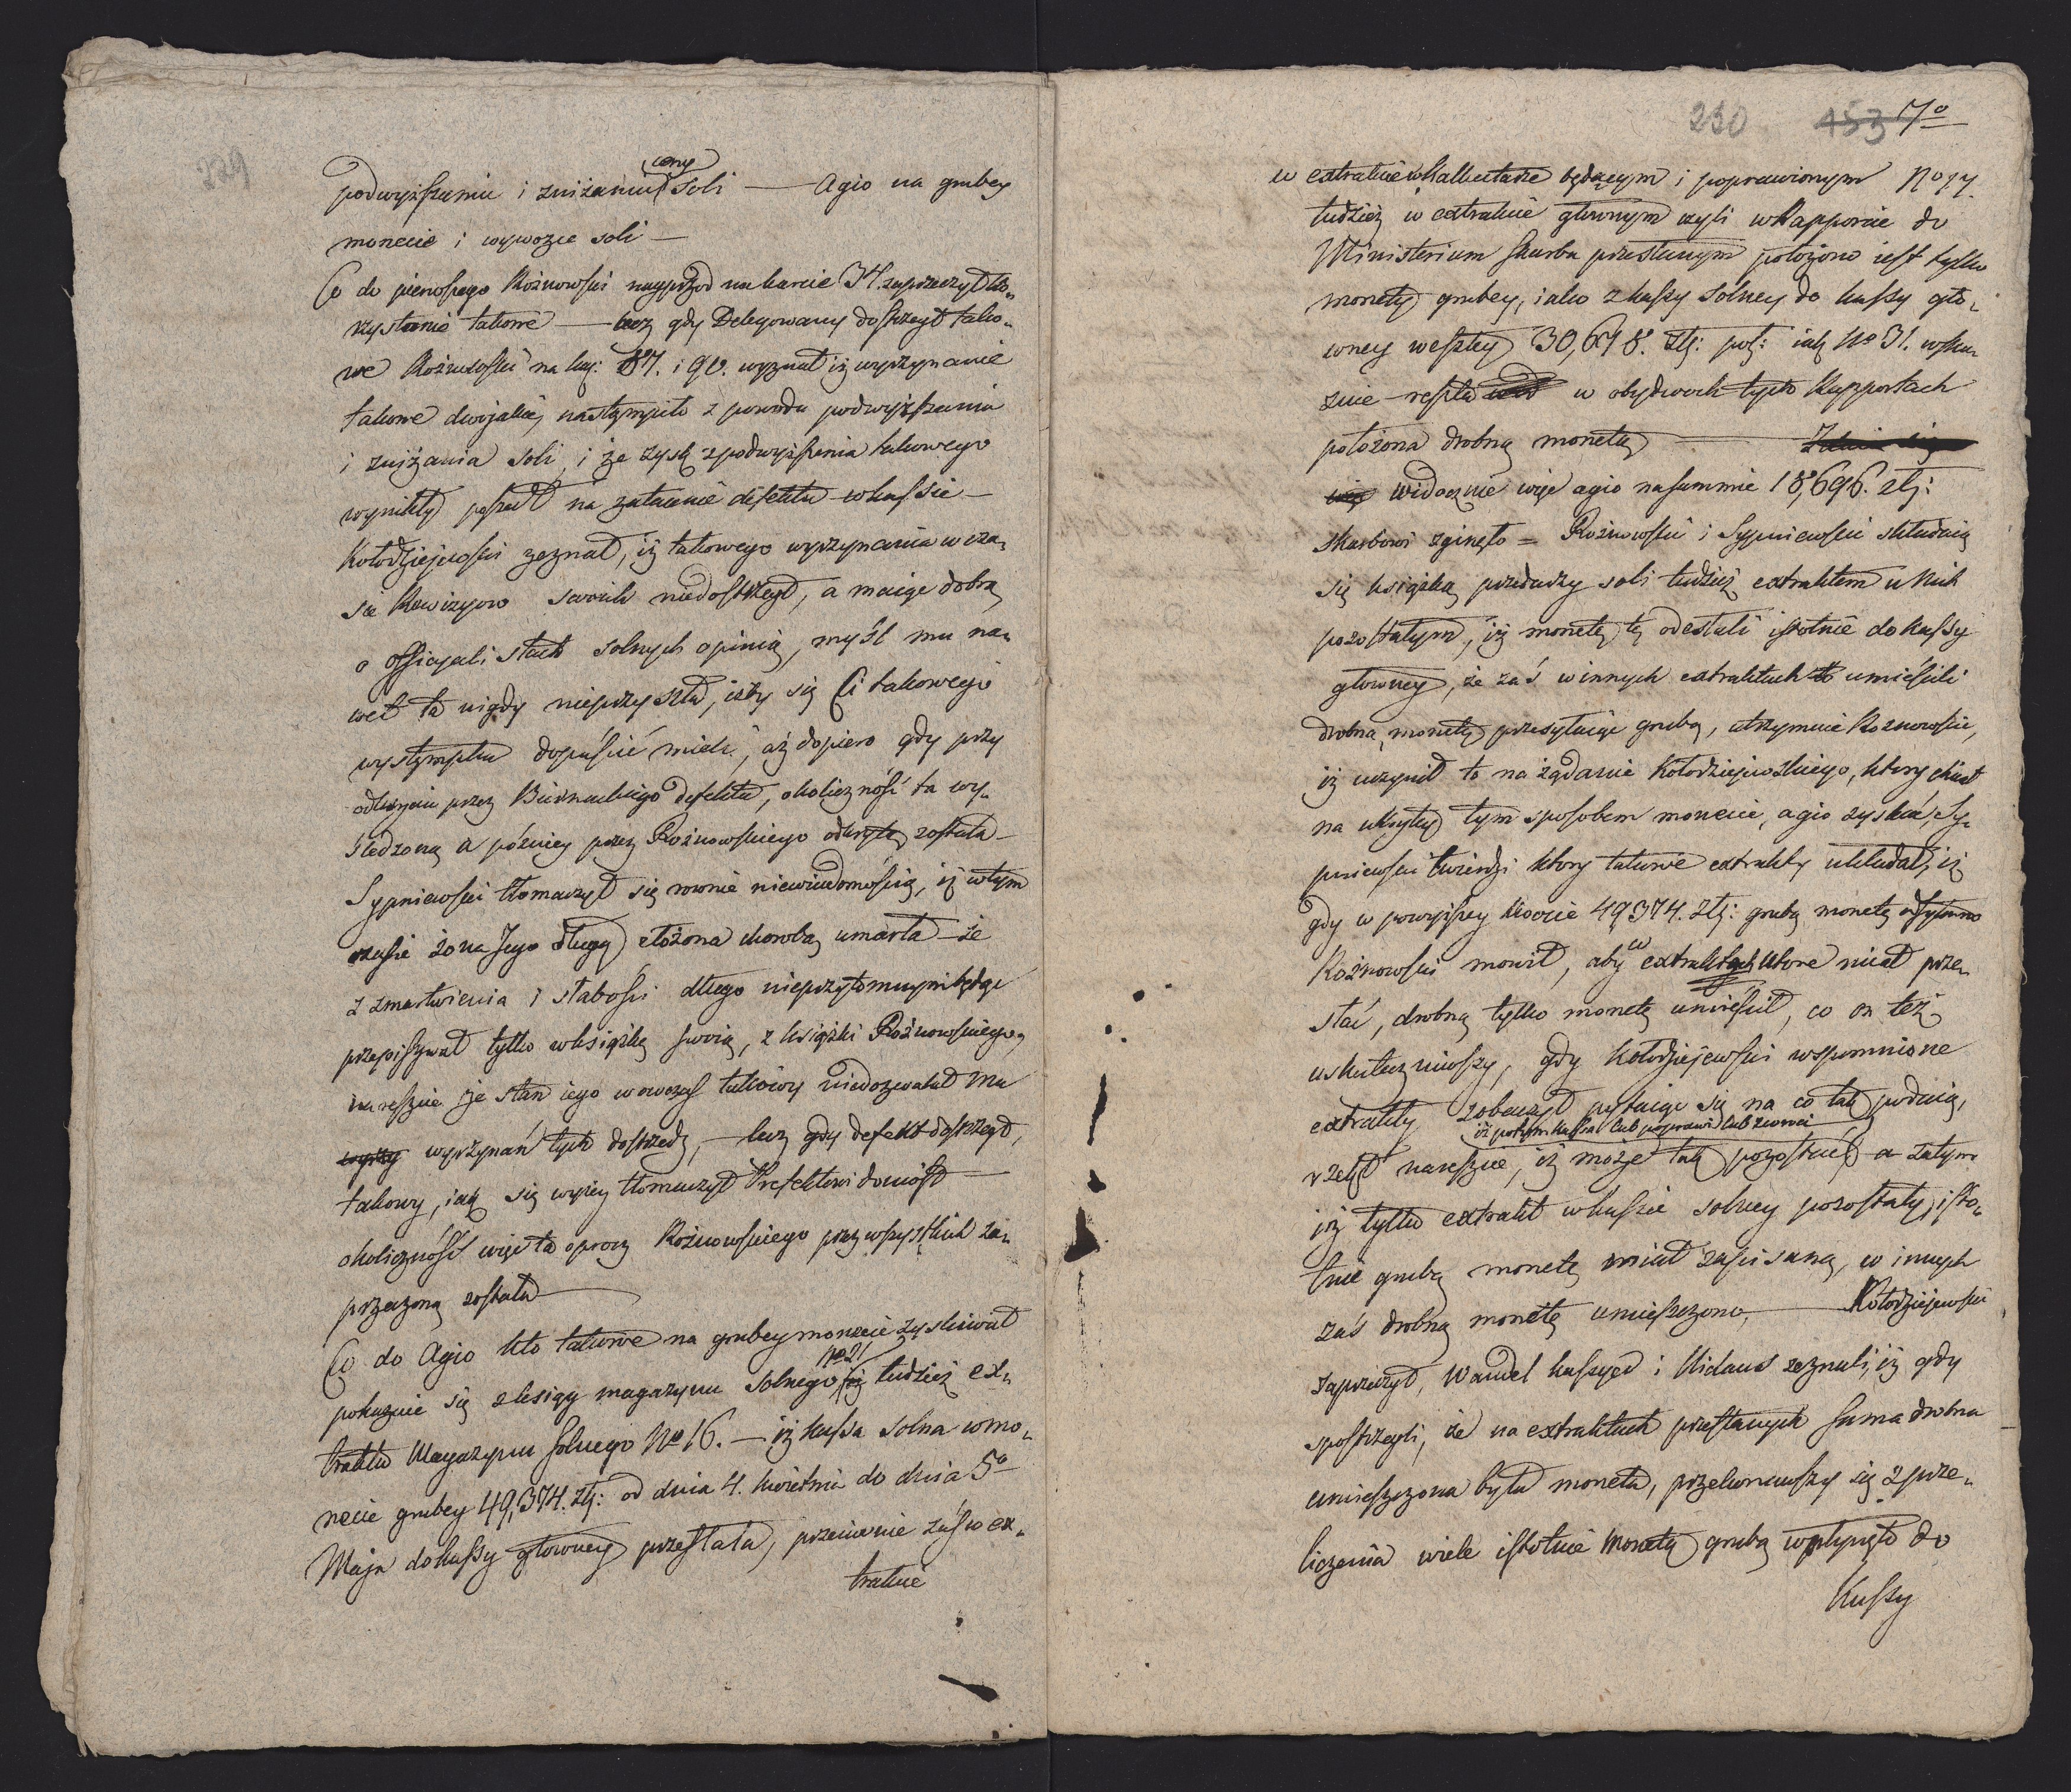 229
podwyższeniu i zniżaniu ceny soli — Agio na grubey
monecie i wywozie soli —
Co do pierwszego Rożnowski nayprzod na karcie 34 zaprzeczył ko„
rzystanie takowe — lecz gdy Delegowany dostrzegł tako„
we Rożnowski na kar: 87. i 90. wyznał iż wyrzynanie
takowe dwojakie, nastąmpiło z powodu podwyższenia
i zniżania soli, i że zysk z podwyższenia takowego
wynikły poszedł na zatarcie defektu w kassie —
Kołodziejewski zeznał, iż takowego wyrzynania w cza„
sie Rewizyow swoich niedostrzegł, a maiąc dobrą
o Officyalistach solnych opinią, myśl mu na„
wet ta nigdy nieprzyszła, iżby się Ci takowego
wystąmpku dopuścić mieli, aż dopiero gdy przy
odkryciu przez Biernackiego defektu, okoliczność ta wy„
śledzona a późniey przez Rożnowskiego odkryta została —
Sypniewski tłomaczył się rownie niewiadomością, iż w tym
czasie żona Jego długą złożona chorobą umarła — że
z zmartwienia i słabości długo nieprzytomnym będąc
przepisywał tylko w książkę swoią, z książki Rożnowskiego,
nareszcie że stan iego wowczas takowy niedozwalał mu
wyrzynań tych dostrzedz, — lecz gdy defekt dostrzegł,
takowy, iak się wyżey tłomaczył Prefektowi doniosł —
okoliczność więc ta oprocz Rożnowskiego przez wszystkich za„
przeczoną została —
Co do Agio kto takowe na grubey monecie zyskiwał
pokazuie się z księgy magazynu solnego No 21 tudzież ex„
traktu Magazynu solnego No 16. — iż kassa solna w mo„
necie grubey 49,374. złt: od dnia 4. kwietnia do dnia 5o
Maja do kassy głowney przesłała, przeciwnie zaś w ex„
trakcie
230 453 7o
w extrakcie w Kalkulatorze będącym i poprawionym No 17
tudzież w extrakcie głownym czyli w Rapporcie do
Ministerium Skarbu przesłanym położono iest tylko
monety grubey, iako z kassy solney do kassy gło„
wney weszłey 30,678. złt: pol: iak No 31. wska„
zuie — reszta w obydwoch tych Rapportach
położona drobną monetą —
widocznie więc agio na summie 18,696. złt:
skarbowi zginęło = Rożnowski i Sypniewski składaią
się książką przedaży soli tudzież extraktem u nich
pozostałym, iż monetę tę odesłali istotnie do kassy
głowney, że zaś w innych extraktach umieścili
drobną monetę przesyłaiąc grubą, utrzymuie Rożnowski,
iż uczynił to na żądanie Kołodziejewskiego, który chciał
na ukrytey tym sposobem monecie, agio zyskać, Sy„
pniewski twierdzi ktory takowe extrakty układał, iż
gdy w powyższey kwocie 49374. złt: grubą monetę odsyłano
Rożnowski mowił, aby w extraktach ktore miał prze„
słać, drobną tylko monetę umieścił, co on też
uskuteczniwszy, gdy Kołodziejewski wspomnione
extrakty zobaczył pytaiąc się na co tak podaią,
iż potym kassa lub poprawi lub zwroci
rzekł nareszcie, iż może tak pozostać a zatym
iż tylko extrakt w kassie solney pozostały, isto„
tnie grubą monetę miał zapisaną, w innych
zaś drobną monetę umieszczono, — Kołodziejewski
zaprzeczył, Wandel kassyer i Kidaus zeznali, iż gdy
spostrzegli, że na extraktach przesłanych sama drobna
umieszczona była moneta, przekonawszy się z prze„
liczenia wiele istotnie monetą grubą wpłynęło do
Kassy